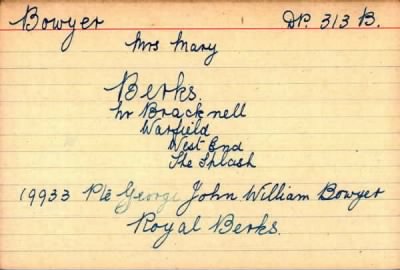 Bowyer DP. 313 B.
Mrs Mary
Berks.
nr Bracknell
Warfield
West End
The Splash
19933 Pte George John William Bowyer
Royal Berks.